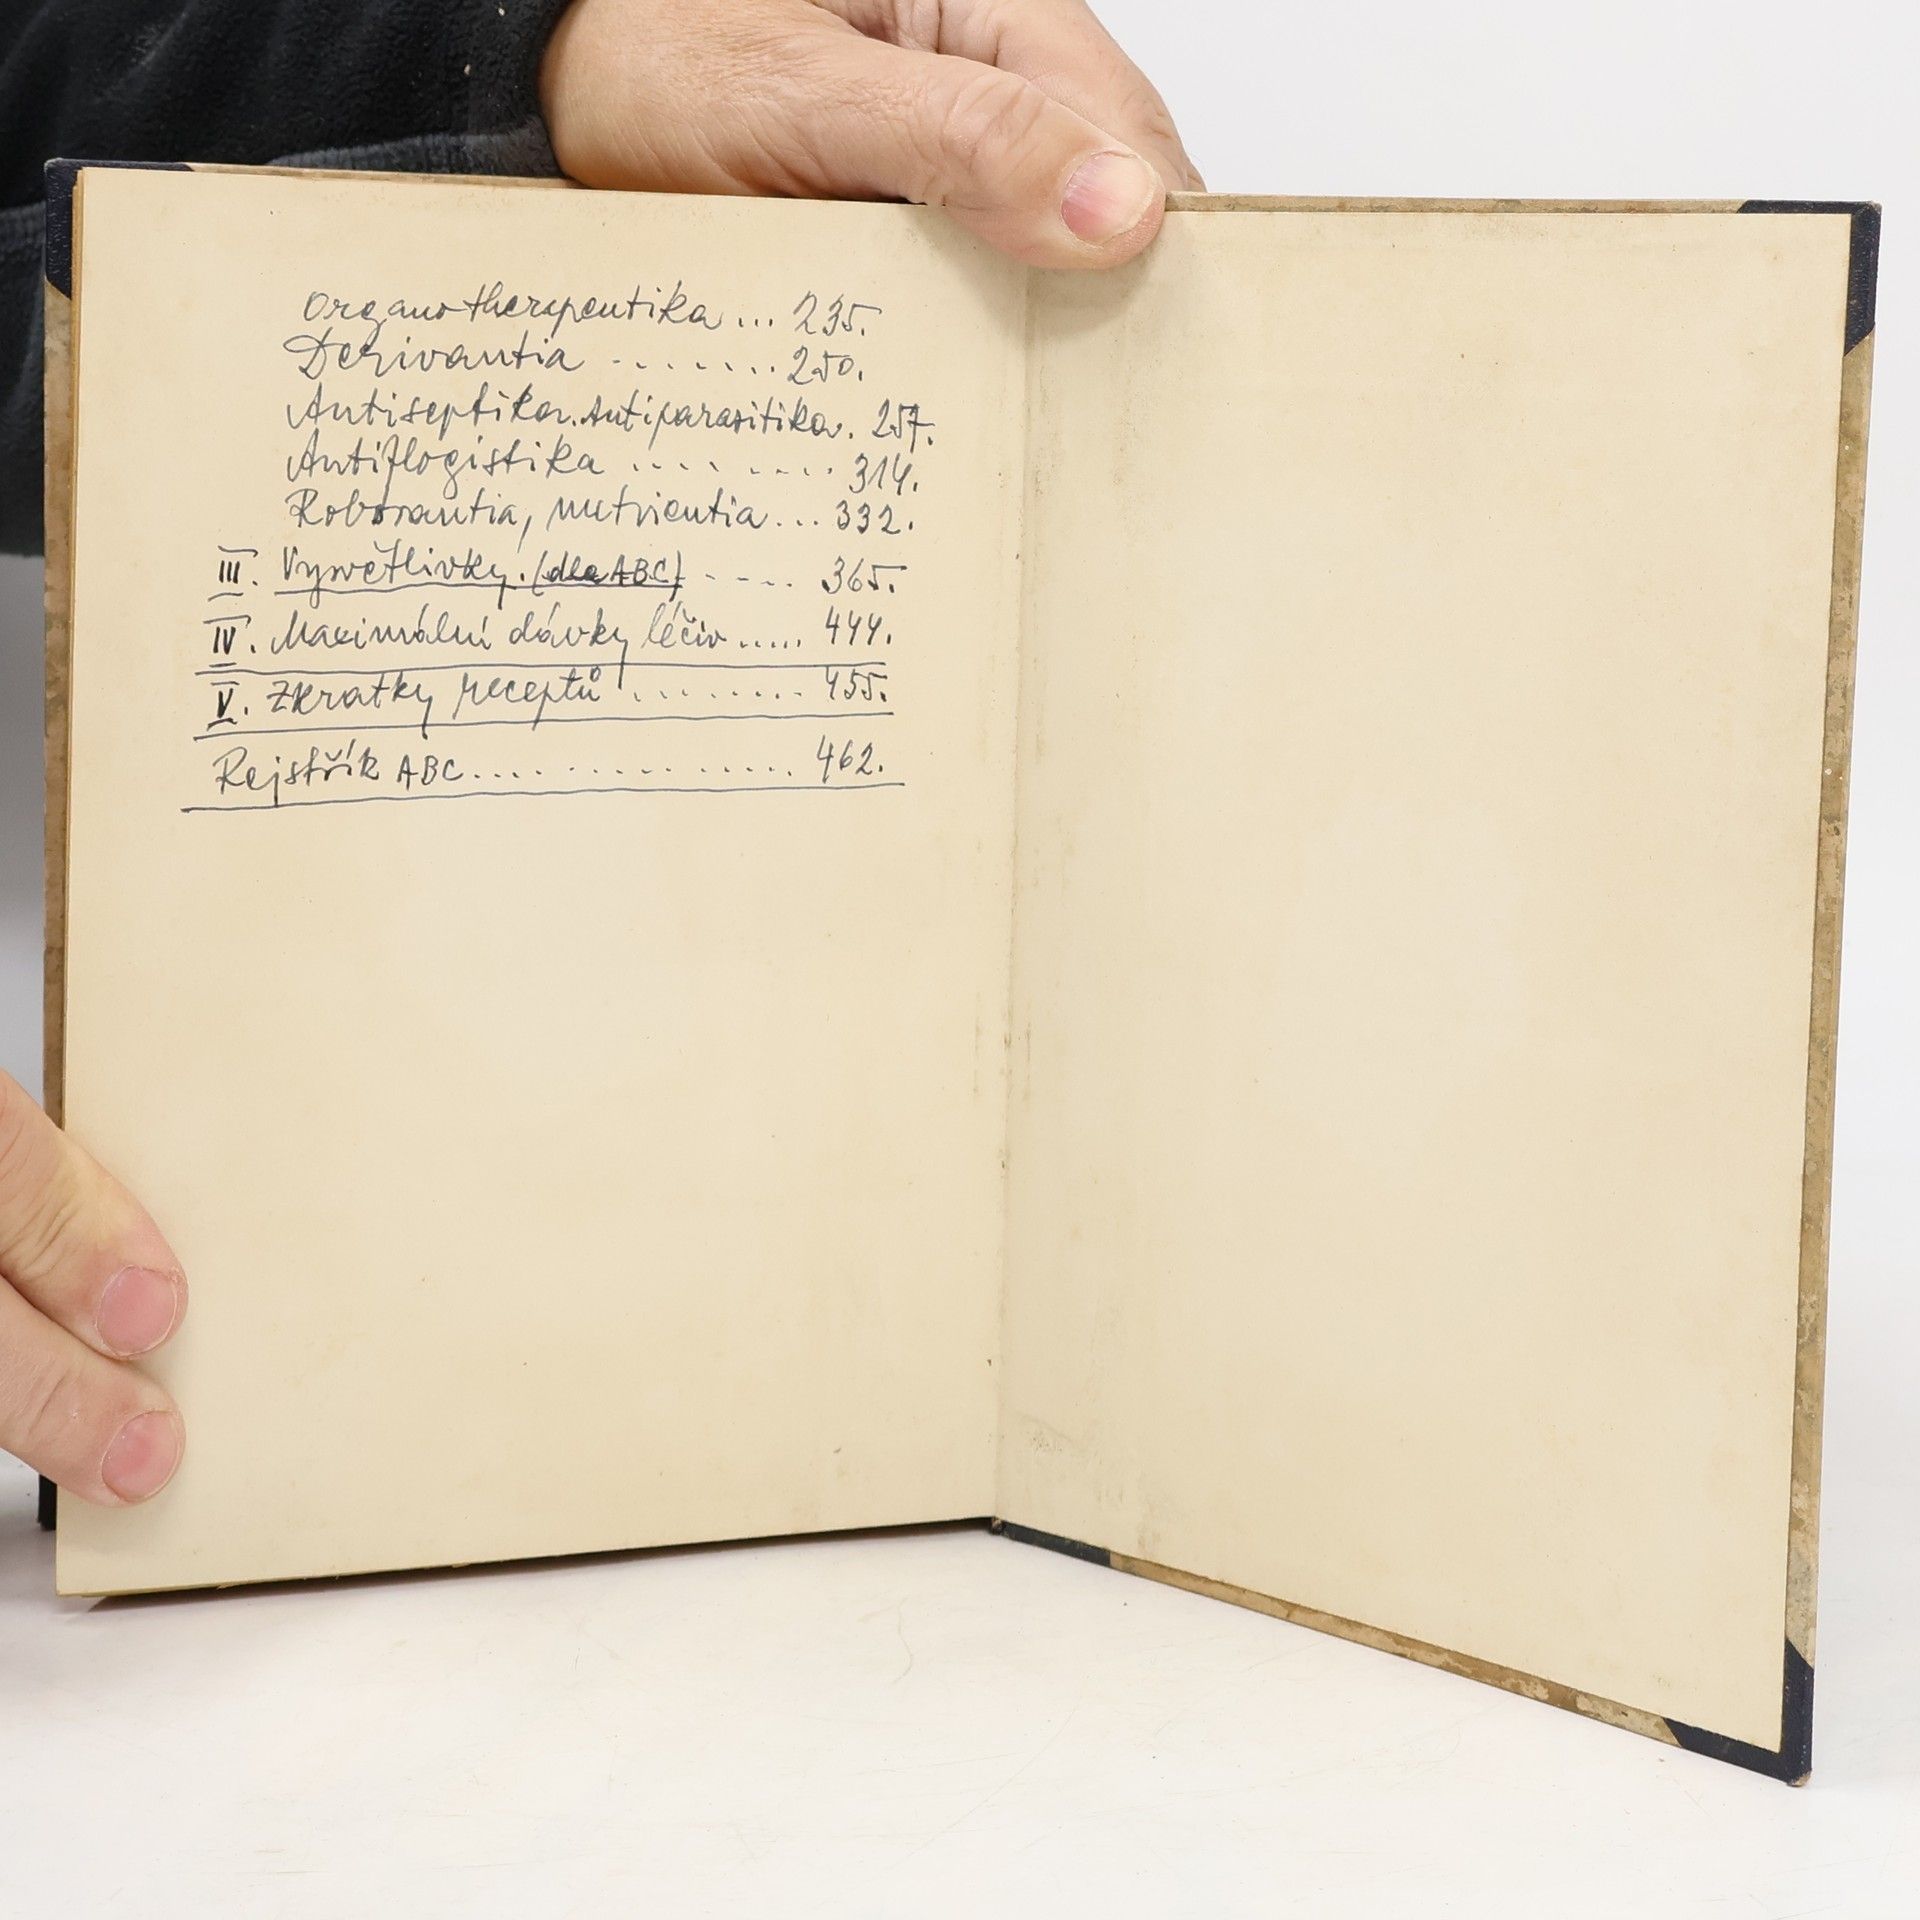 Organotherapeutika ... 235.
Derivantia ........ 250.
Antiseptika. Antiparasitika. 257.
Antiflogistika ........ 314.
Roborantia, nutrientia ... 332.
III. Vysvětlivky. (dle ABC) .... 365.
IV. Maximální dávky léčiv ..... 444.
V. Zkratky receptů ........ 455.
Rejstřík ABC .............. 462.